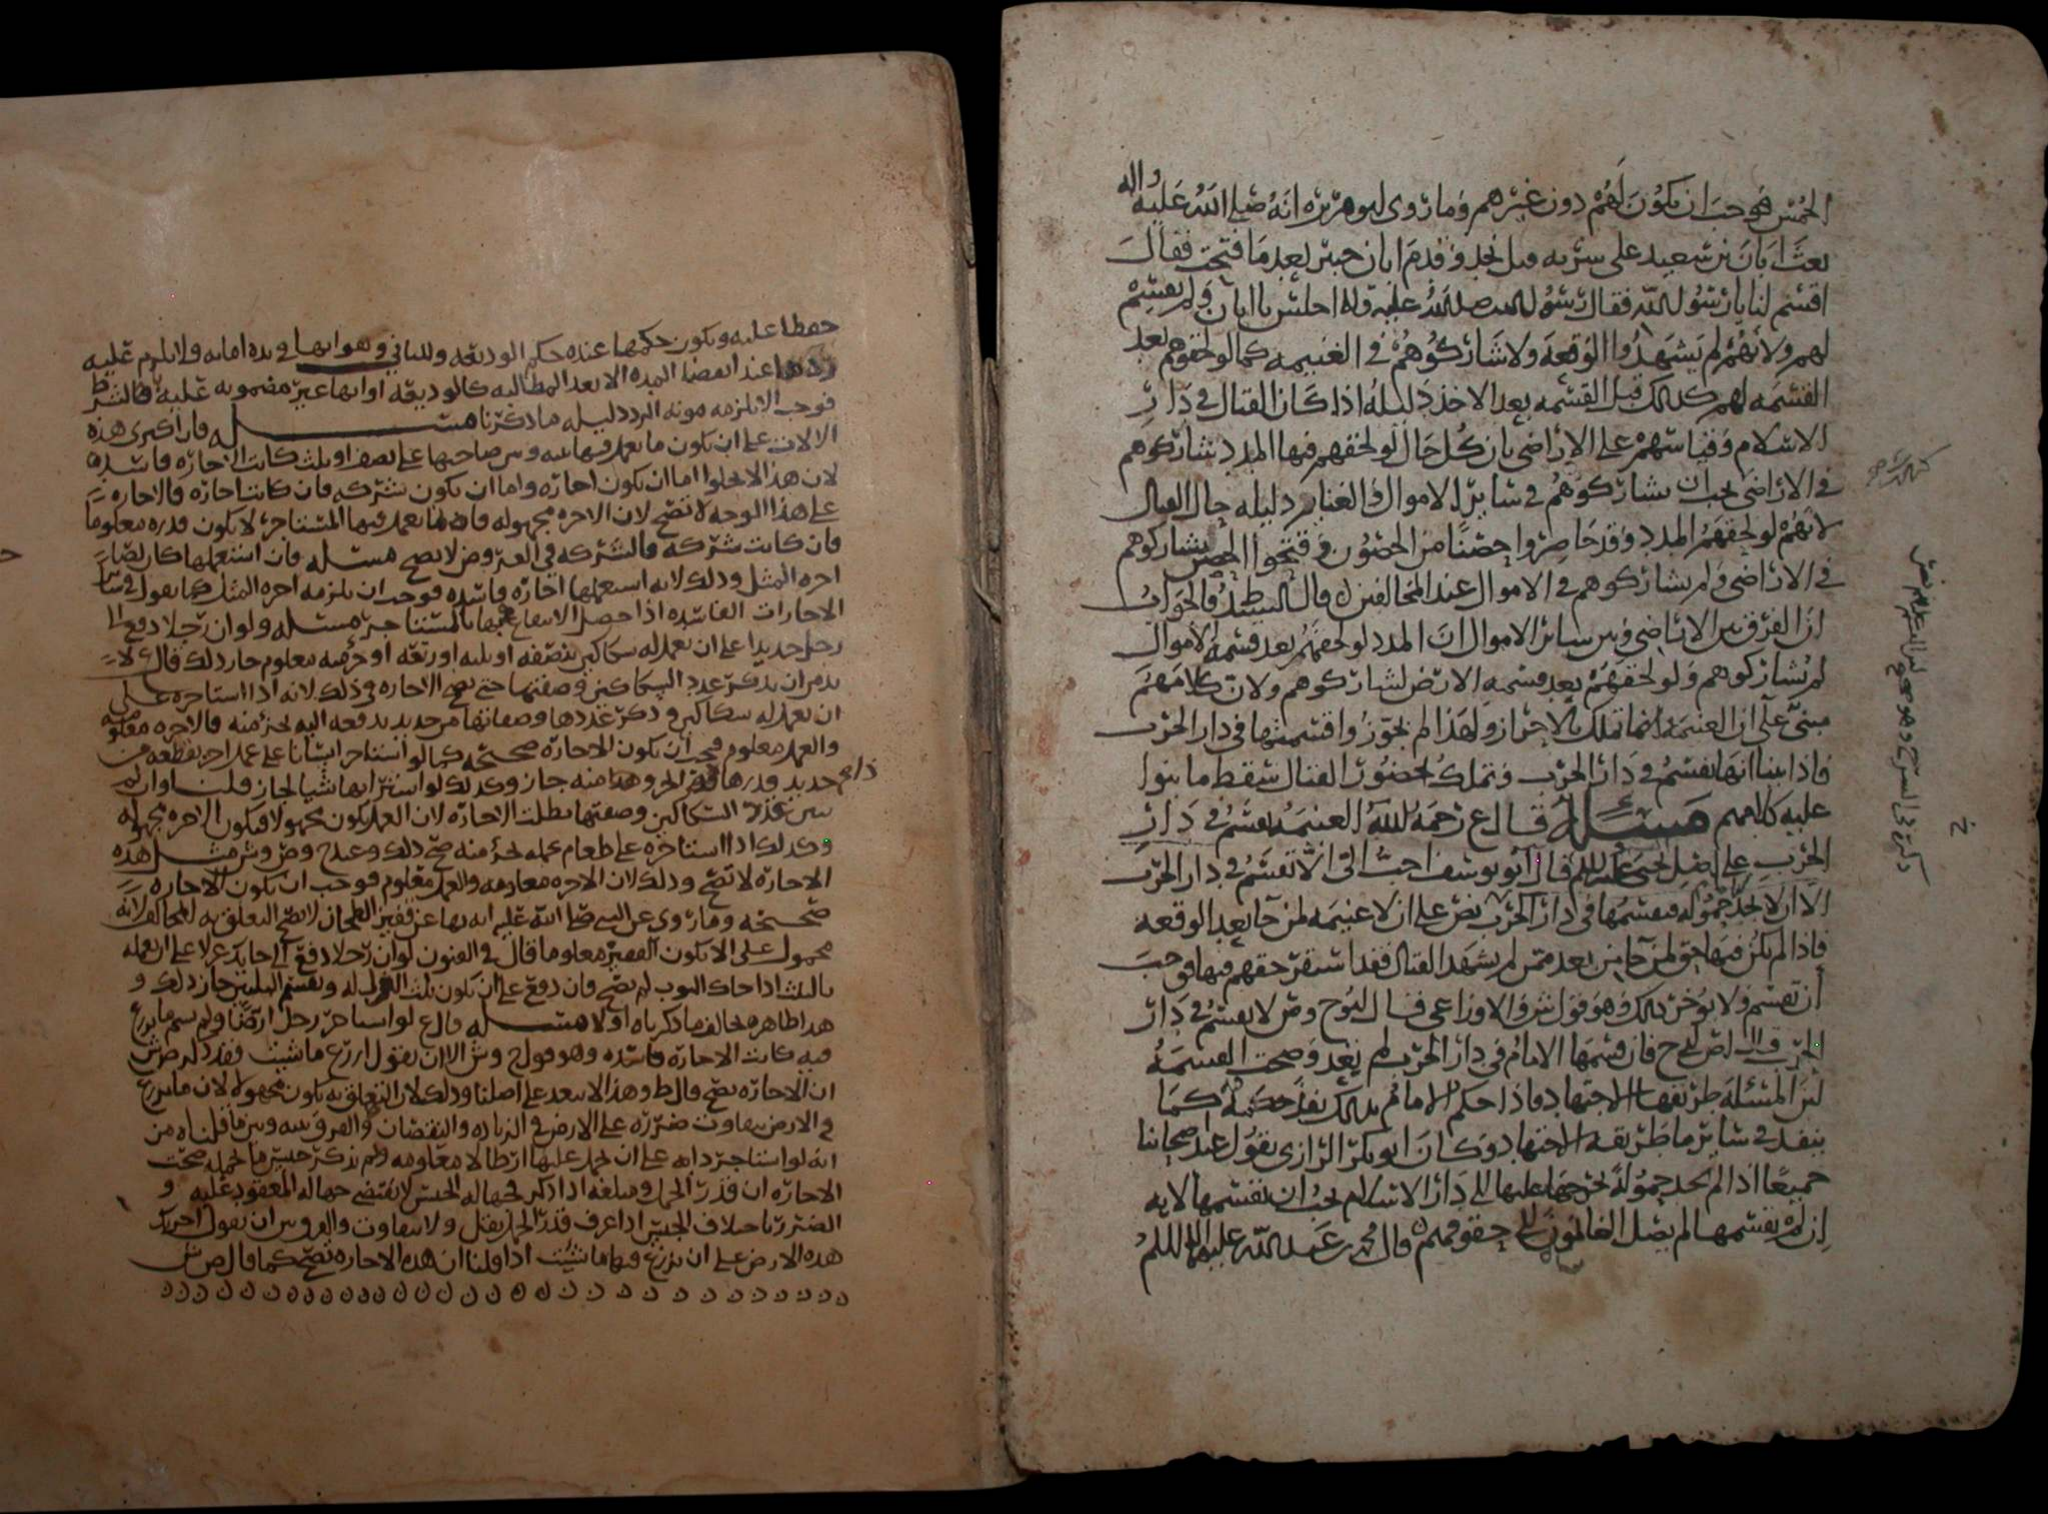 الخمس فوجب ان يكون لهم دون غيرهم وما روى ابو هريرة انه صلى الله عليه واله
بعث ابان بن سعيد على سرية قبل نجد وقدم ابان خيبر بعد ما فتحت فقال
اقسم لنا يا رسول الله فقال رسول الله صلى الله عليه واله اجلس يا ابان ولم يقسم
لهم ولانهم لم يشهدوا الوقعة ولا شاركوهم في الغنيمه كما لو لحقوهم بعد
القسمه لهم كذلك قبل القسمه بعد الاخذ دليله اذا كان القتال في دار
الاسلام وقياسهم على الاراضي بان كل حال لو لحقهم فيها المدد يشاركوهم
في الاراضي يجب ان يشاركوهم في سائر الاموال والغنايم دليله حال القتال
لانهم لو لحقهم المدد وقد حاصروا حصنا من الحصون وفتحوا الحصن يشاركوهم
في الاراضي ولم يشاركوهم في الاموال عند المخالفين قال السيد ط فالجواب
ان الفرق بين الاراضي وبين سائر الاموال ان المدد لو لحقهم بعد قسمة الاموال
لم يشاركوهم ولو لحقهم بعد قسمه الارض لشاركوهم ولان كلامهم
مبني على ان الغنيمة انما تملك بالاحراز ولهذا لم يجوزوا قسمتها في دار الحرب
فاذا بينا انها تقسم في دار الحرب وتملك بحضور القتال سقط ما بنوا
عليه كلامهم مسئلة قال ع رحمه الله الغنيمة تقسم في دار
الحرب على اصل يحيى عليه السلم قال ابو يوسف احب الي الا تقسم في دار الحرب
الا ان لا يجد حموله فيقسمها في دار الحرب نص على ان لا غنيمه لمن جا بعد الوقعة
فاذا لم يكن فيها حق لمن جا من بعد ممن لم يشهد القتال فقد استقر حقهم فيها فوجب
ان تقسم ولا يؤخر ذلك وهو قول ش والاوزاعي قال ابو ح وص لا يقسم في دار
الحرب قال ص لح فان قسمها الامام في دار الحرب لم يبعد وصحت القسمة
لان المسئلة طريقها الاجتهاد فاذا حكم الامام بذلك نفذ حكمه كما
ينفذ في سائر ما طريقه الاجتهاد وكان ابو بكر الرازي يقول عند اصحابنا
جميعا اذا لم يجد حمولة يخرجها عليها الى دار الاسلام يجب ان يقسمها لانه
ان لم يقسمها لم يصل الغانمون الى حقوقهم قال محمد بن عبد الله عليهما السلم
حفظا عليه ويكون حكمها عنده حكم الوديعه وللثاني وهو انها في يده امانه ولا يلزم عليه
ردها عند انقضا المده الا بعد المطالبه كالوديعه او انها غير مضمونه عليه بالشرط
فوجب الا تلزمه مونه الرد دليله ما ذكرنا مسئله فان اكرى هذه
الالات على ان يكون ما يعمل فيها بينه وبين صاحبها على نصف او ثلث كانت الاجاره فاسده
لان هذا لا يخلوا اما ان يكون اجاره واما ان يكون شركه فان كانت اجاره فالاجاره
على هذا الوجه لا تصح لان الاجره مجهوله فان ما يعمل فيها المستاجر لا يكون قدره معلوما
فان كانت شركة فالشركه في العروض لا يصح مسئله فان استعملها كان لصاحبها
اجره المثل وذلك لانه استعملها اجاره فاسده فوجب ان يلزمه اجره المثل كما يقول في سائر
الاجارات الفاسده اذا حصل الانتفاع بها للمستاجر مسئله ولو ان رجلا دفع الى
رجل حديدا على ان يعمل له سكاكين بنصفه او ثلثه او ربعه او جزء منه معلوم جاز ذلك قال ولا
بد من ان يذكر عدد السكاكين وصفتها حتى تصح الاجاره وذلك لانه اذا استاجره على
ان يعمل له سكاكين وذكر عددها وصفاتها من حديد يدفعه اليه بجزء منه فالاجره معلومه
والعمل معلوم فيجب ان يكون الاجاره صحيحه كما لو استاجر انسانا على عمل اجره بقطعه من
حديد قدرها قدر الجزء وهذا منه جاز وكذلك لو اشترى بها شيا لجاز قلنا وان لم
يبين عدد السكاكين وصفتها بطلت الاجاره لان العمل يكون مجهولا فيكون الاجره مجهولة
وكذلك اذا استاجره على طعام عمله بجزء منه صح ذلك وعند ح وص وش مثل هذه
الاجاره لا تصح وذلك لان الاجره معلومه والعمل معلوم فوجب ان يكون الاجاره
صحيحه وما روي عن النبي صلى الله عليه انه نهى عن قفيز الطحان لا يصح التعلق به للمخالف لانه
محمول على الا يكون القفيز معلوما قال في الفنون لو ان رجلا دفع الى حايك غزلا على ان يعمله
بالثلث اذا حاك الثوب لم يصح فان دفع على ان يكون ثلث الغزل له ويقسم الثلثين جاز ذلك و
هذا ظاهره يخالف ما ذكرناه اولا مسئله قال ع لو استاجر رجل ارضا ولم يسم ما يزرع
فيه كانت الاجاره فاسده وهو قول ح وش الا ان يقول ازرع ما شيت فقد ذكر ص ش
ان الاجاره تصح قال ط وهذا لا يبعد على اصلنا وذلك لان التعلق به يكون مجهوله لان ما يزرع
في الارض يتفاوت ضرره على الارض في الزياده والنقصان والفرق بينه وبين ما قلناه من
انه لو استاجر دابه على ان يحمل عليها ارطالا معلومه ولم يذكر جنس ما يحمله صحت
الاجاره ان قدر الحمل ومبلغه اذا ذكر فجهالة الجنس لا يقتضي جهاله المعقود عليه و
الضرر باختلاف الجنس اذا عرف قدر الحمل يقل ولا يتفاوت والفرق بين ان يقول اجرتك
هذه الارض على ان تزرع فيها ما شيت اذا قلنا ان هذه الاجاره تصح كما قال ص ش